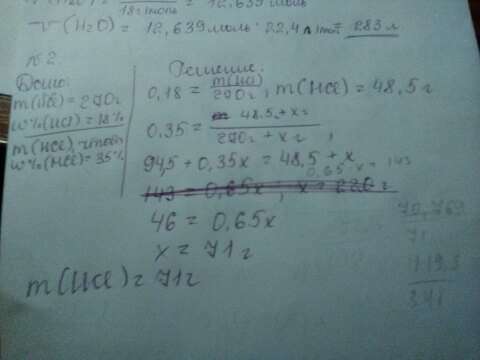 18г/моль = 12,639моль
V(H₂O) = 12,639моль · 22,4 л/моль = 283 л
№2
Дано:
m(HCl) = 270г
w%(HCl) = 18%
m(HCl), чтобы
w%(HCl) = 35%
Решение:
0,18 = m(HCl)/270г, m(HCl) = 48,5г
0,35 = 48,5+xг/270г+xг,
94,5 + 0,35x = 48,5 + x
0,65x = 143
143 = 0,65x, x = 220г
46 = 0,65x
x = 71г
m(HCl) = 71г
70,769
71